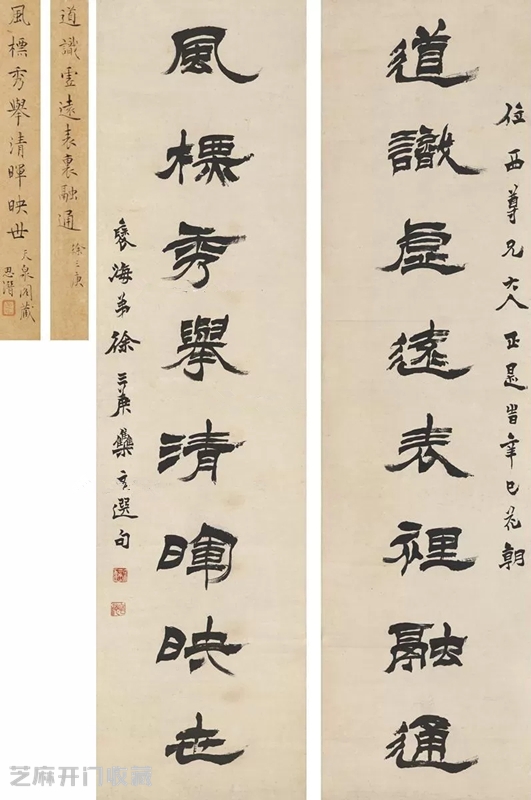 位西尊兄大人正是旹辛巳花朝
道識虛遠表裡融通
風標秀舉清暉映世
褎海弟徐三庚雧文選句
道識虛遠表裏融通
徐三庚
風標秀舉清暉映世
天泉閣藏
思潛
芝麻开门收藏